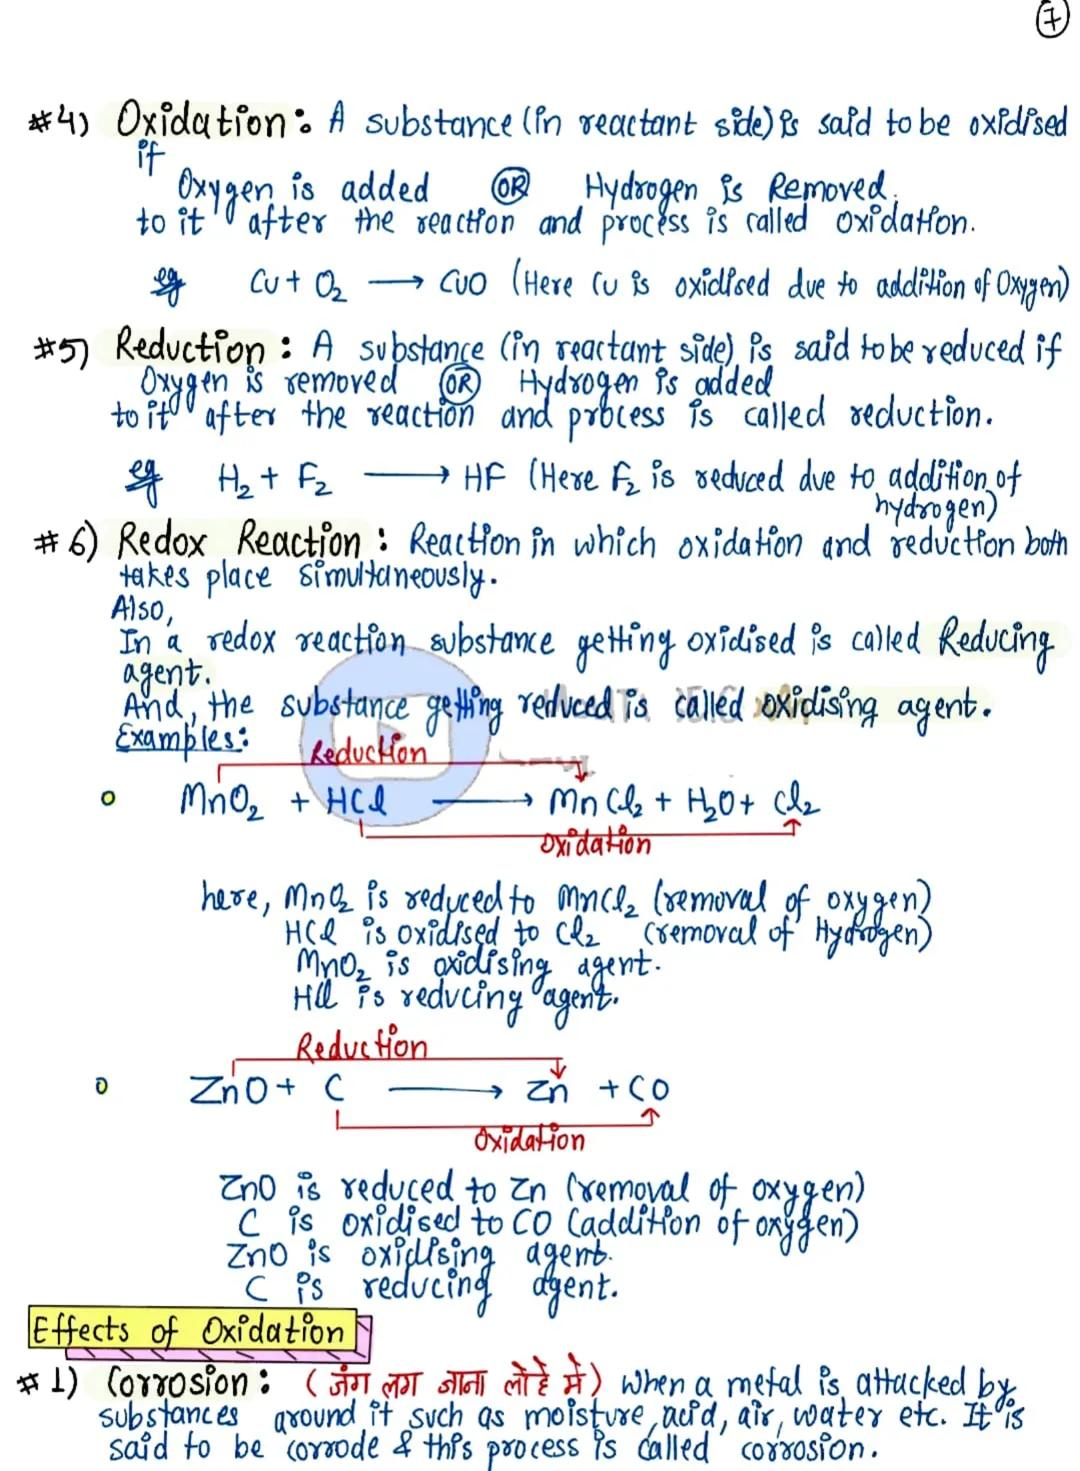 7
#4) Oxidation: A substance (in reactant side) is said to be oxidised
if
Oxygen is added OR Hydrogen is Removed.
to it after the reaction and process is called oxidation.
eg Cu + O₂ → CuO (Here Cu is oxidised due to addition of Oxygen)
#5) Reduction: A substance (in reactant side) is said to be reduced if
Oxygen is removed OR Hydrogen is added
to it after the reaction and process is called reduction.
eg H₂ + F₂ → HF (Here F₂ is reduced due to addition of
hydrogen)
#6) Redox Reaction: Reaction in which oxidation and reduction both
takes place simultaneously.
Also,
In a redox reaction substance getting oxidised is called Reducing
agent.
And, the substance getting reduced is called oxidising agent.
Examples:
Reduction
MnO₂ + HCl → MnCl₂ + H₂O + Cl₂
Oxidation
here, MnO₂ is reduced to MnCl₂ (removal of oxygen)
HCl is oxidised to Cl₂ (removal of Hydrogen)
MnO₂ is oxidising agent.
HCl is reducing agent.
Reduction
ZnO + C → Zn + CO
Oxidation
ZnO is reduced to Zn (removal of oxygen)
C is oxidised to CO (addition of oxygen)
ZnO is oxidising agent.
C is reducing agent.
Effects of Oxidation
#1) Corrosion: (जंग लग जाना लोहे में) when a metal is attacked by
substances around it such as moisture, acid, air, water etc. It is
said to be corrode & this process is called corrosion.